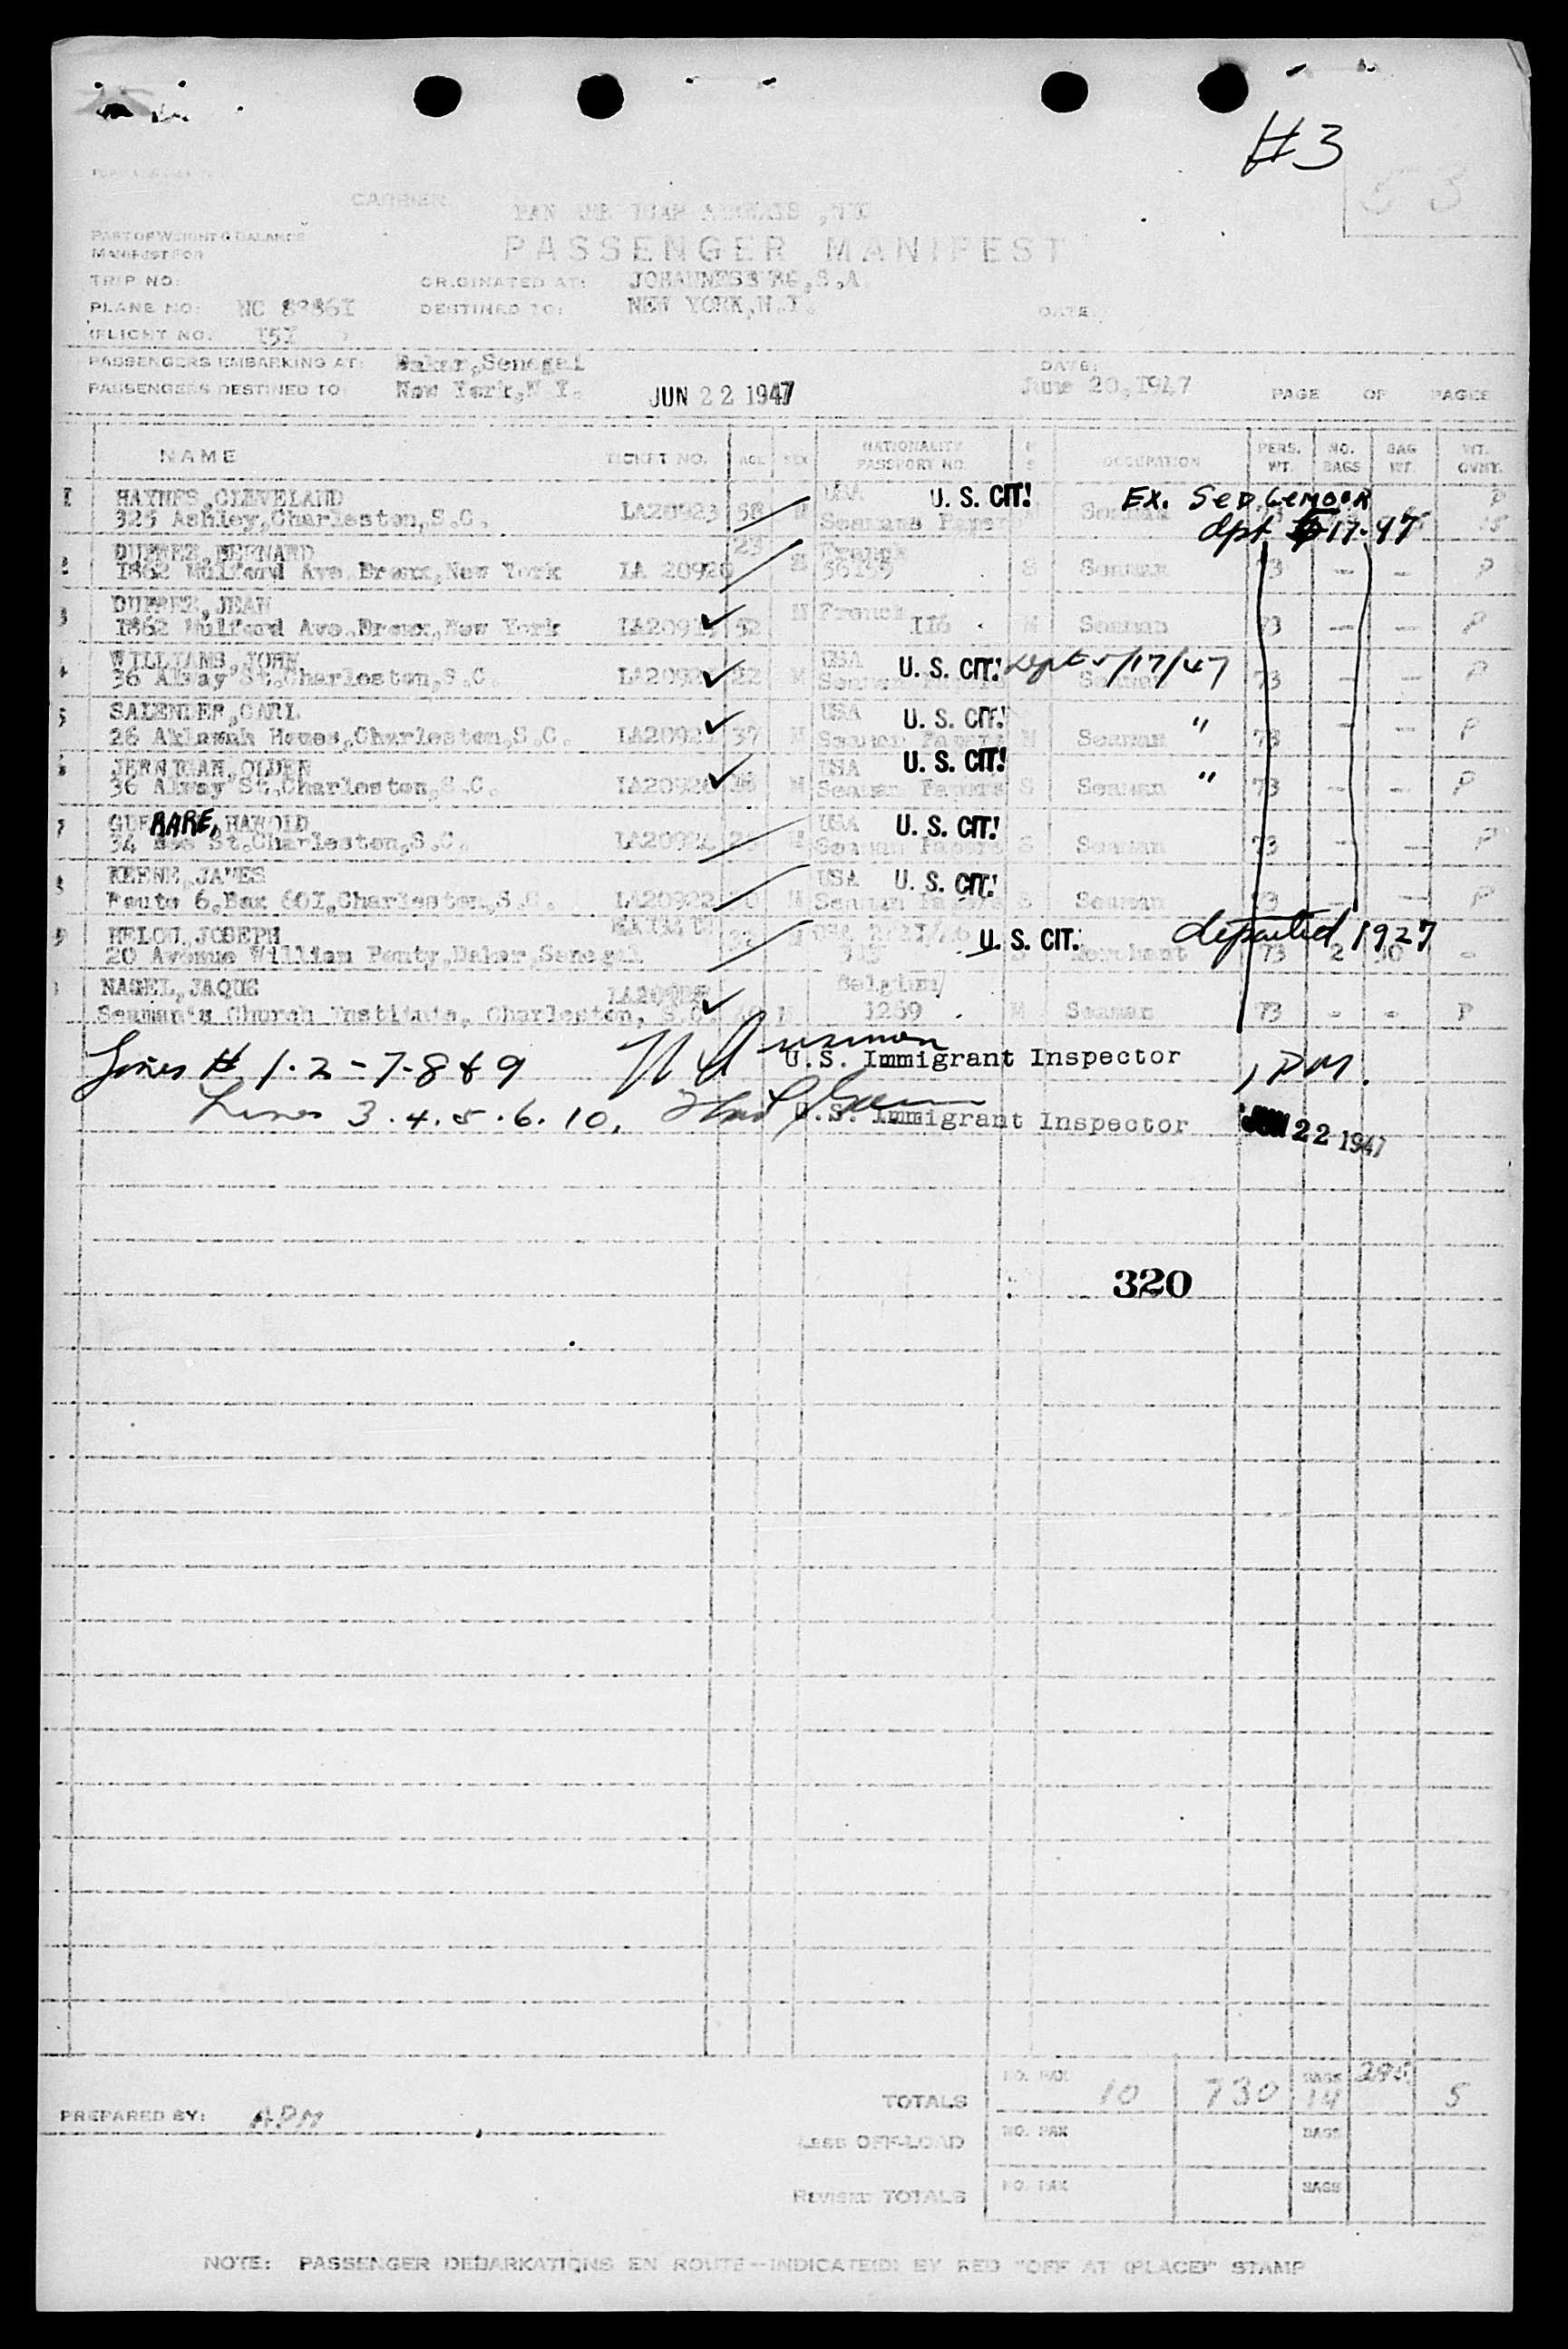 #3
53
CARRIER
PAN AMERICAN AIRWAYS, INC
PART OF WEIGHT & BALANCE
MANIFEST FOR
PASSENGER MANIFEST
TRIP NO:
ORIGINATED AT: JOHANNESBURG,S.A.
PLANE NO: NC 8886I
DESTINED TO: NEW YORK,N.Y.
DATE:
(FLIGHT NO. I5I )
PASSENGERS EMBARKING AT: Dakar,Senegal
DATE:
PASSENGERS DESTINED TO: New York,N.Y. JUN 22 1947 June 20,1947 PAGE OF PAGES
NAME TICKET NO. AGE SEX NATIONALITY PASSPORT NO. M S OCCUPATION PERS. WT. NO. BAGS BAG WT. WT. OVNT.
I HAYNES,CLEVELAND USA U. S. CIT! EX. SEDGEMOOR P
325 Ashley,Charleston,S.C. IA20923 58 M Seamans Papers M Seaman dpt 5-17-47
2 BERNARD 23 France
1862 Mulford Ave.Bronx,New York IA 20920 M S Seaman 73 — — P
3 DUPREZ,JEAN
1862 Mulford Ave.Bronx,New York 52 M France II6 M Seaman 73 — — P
4 WILLIAMS,JOHN USA U. S. CIT! dept 5/17/47
36 Alway St.Charleston,S.C. 22 M Seaman Papers Seaman 73 — — P
5 CARL USA U. S. CIT!
26 Charleston,S.C. 37 M Seaman Papers M Seaman " 73 — — P
6 JERNIGAN,OLDEN USA U. S. CIT!
36 Alway St.Charleston,S.C. IA20926 M Seaman Papers S Seaman " 73 — — P
7 RARE, HAROLD USA U. S. CIT!
34 St.Charleston,S.C. M Seaman Papers S Seaman 73 — — P
8 KEENE,JAMES USA U. S. CIT!
Route 6,Box 60I,Charleston,S.C. IA20922 M Seaman Papers S Seaman 73 — — P
9 HELOU,JOSEPH U. S. CIT. departed 1927
20 Avenue William Ponty,Dakar,Senegal M Merchant 73 2 30 -
NAGEL,JAQUE Belgium
Seaman's Church Institute, Charleston, S.C. M 1269 M Seaman 73 - - P
Lines # 1-2-7-8 & 9 U.S. Immigrant Inspector 1 PM.
Lines 3.4.5.6.10. U.S. Immigrant Inspector JUN 22 1947
320
TOTALS NO. PAX 10 730 BAGS 14 295 5
PREPARED BY: APM
LESS OFF-LOAD NO. PAX BAGS
REVISED TOTALS NO. PAX BAGS
NOTE: PASSENGER DEBARKATIONS EN ROUTE—INDICATE(D) BY RED "OFF AT (PLACE)" STAMP